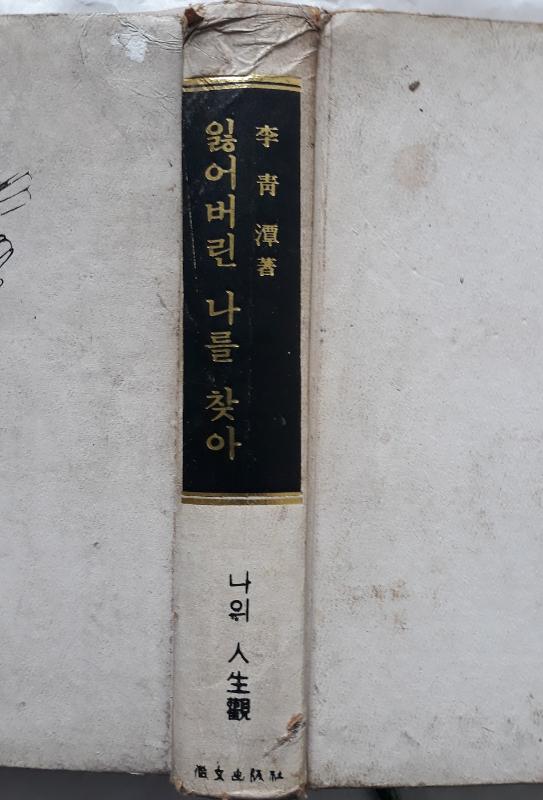 李靑潭著
잃어버린 나를 찾아
나의 人生觀
徽文出版社